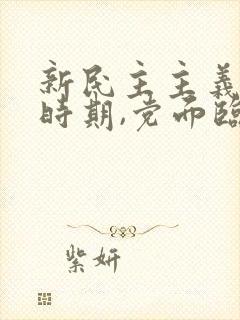 新民主主義
時期,党面臨
紫妍